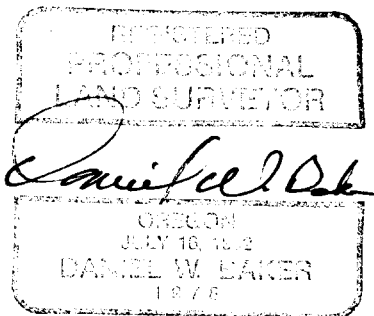 REGISTERED
PROFESSIONAL
LAND SURVEYOR
Daniel W. Baker
OREGON
JULY 16,
DANIEL W. BAKER